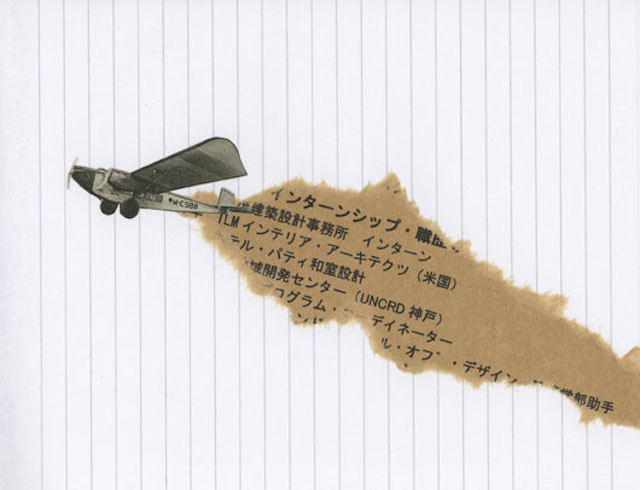 M-CSBB
インターンシップ・職歴
建築設計事務所 インターン
TLM インテリア・アーキテクツ(米国)
テル・パティ和室設計
域開発センター(UNCRD 神戸)
ログラム・ ディネーター
ンド
ル・オブ・デザイン 学部助手